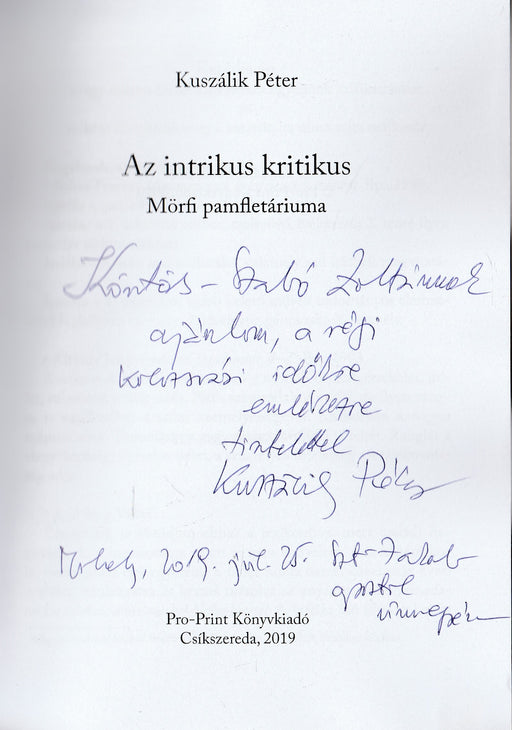 Kuszálik Péter
Az intrikus kritikus
Mörfi pamfletáriuma
Köntös-Szabó Zoltánnak
ajánlom, a régi
kolozsvári időkre
emlékezve
tisztelettel
Kuszálik Péter
Mrhely, 2019. júl. 25. Szt. Jakab
apostol
ünnepén
Pro-Print Könyvkiadó
Csíkszereda, 2019